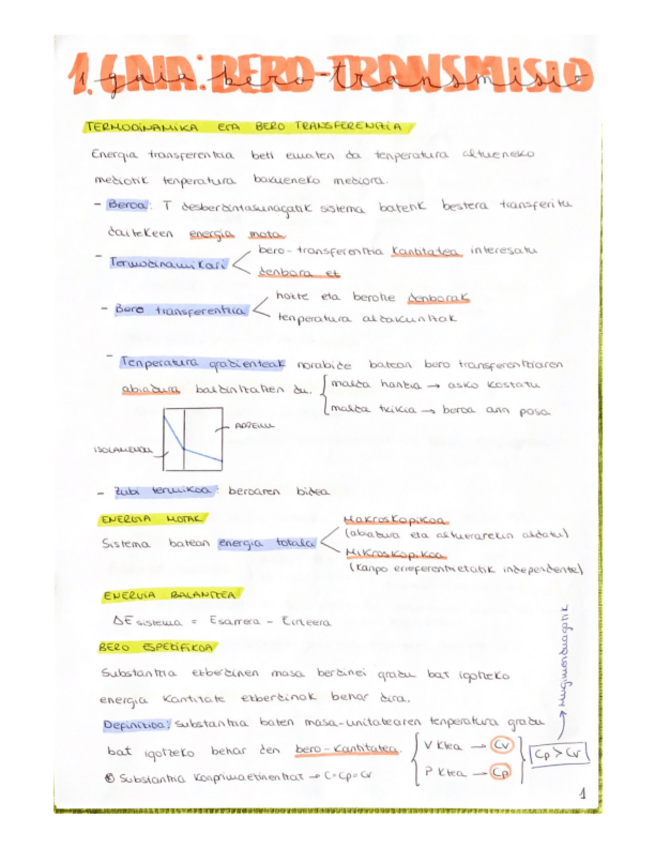 1. GAIA: BERO-TRANSMISIO
1 gaia bero-transmisio
TERMODINAMIKA ETA BERO TRANSFERENTZIA
Energia transferentzia beti ematen da tenperatura altueneko
mediotik tenperatura baxueneko mediora.
- Beroa: T desberdintasunagatik sistema batetik bestera transferitu
daitekeen energia mota
- Termodinamikari
bero-transferentzia kantitatea interesatu
denbora ez
- Bero transferentzia
hozte eta berotze denborak
tenperatura aldakuntzak
- Tenperatura gradienteak norabide batean bero transferentziaren
abiadura baldintzatzen du.
malda handia → asko kostatu
malda txikia → beroa pasa
ISOLAMENDU
ADREILU
- Zubi termikoa: beroaren bidea
ENERGIA MOTAK
Sistema batean energia totala
Makroskopikoa
(abiadura eta altuerarekin aldatu)
Mikroskopikoa
(kanpo erreferentzietatik independente)
ENERGIA BALANTZEA
ΔE sistema = Esarrera - Eirteera
BERO ESPEZIFIKOA
Substantzia ezberdinen masa berdinei gradu bat igotzeko
energia kantitate ezberdinak behar dira.
Definizioa: Substantzia baten masa-unitatearen tenperatura gradu
bat igotzeko behar den bero-kantitatea.
V ktea → Cv
P ktea → Cp
Cp > Cv
→ Mugimenduagatik
Substantzia konprimaezinentzat → C=Cp=Cv
1